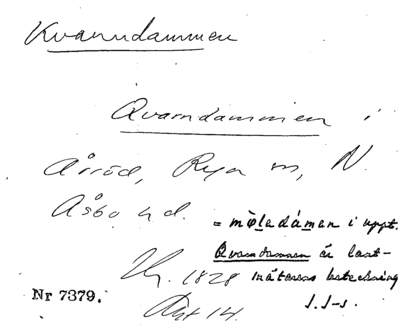 Kvarndammen
Qvarndammen i
Årröd, Rya sn, N.
Åsbo hd.
= møledámen i uppt.
Qvarndammen är lant-
mäteras beteckning
S. I-s.
1828
Akt 14.
Nr 7379.